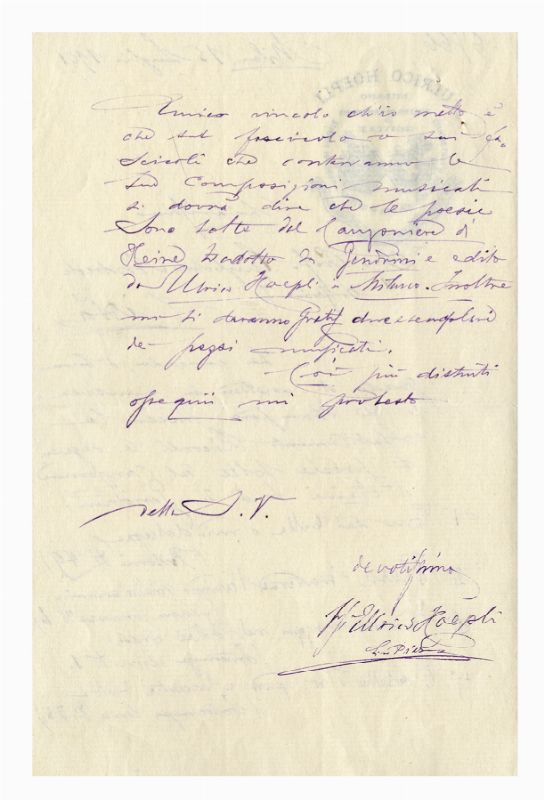 Unico vincolo ch'io metto è
che sul fascicolo o sui fa-
scicoli che conterranno le
sue composizioni musicali
si dovrà dire che le poesie
sono tolte dal Canzoniere di
Heine tradotto di Zendrini e edito
da Ulrico Hoepli a Milano. Inoltre
mi si daranno gratis due esemplari
de' pezzi musicati.
- Coi più distinti
ossequii mi protesto
della S. V.
devotissimo
Ulrico Hoepli